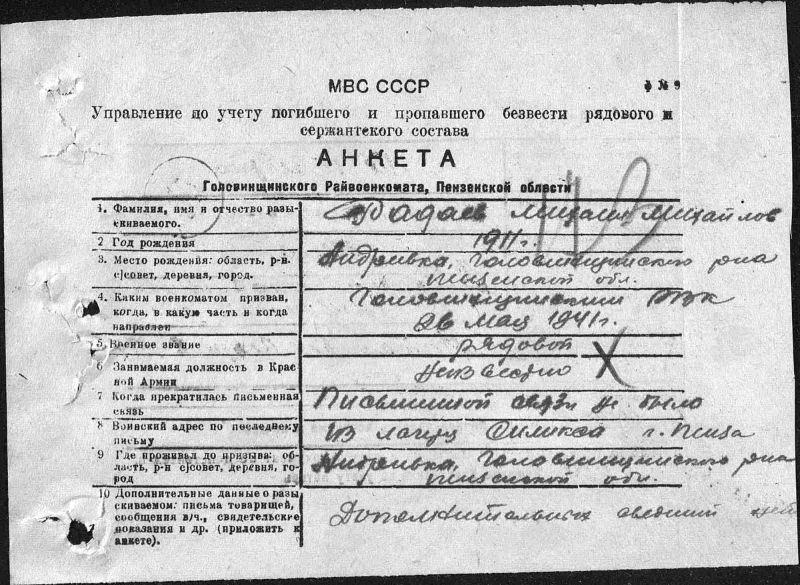 МВС СССР
ф № 9
Управление по учету погибшего и пропавшего безвести рядового и
сержантского состава
АНКЕТА
Головинщинского Райвоенкомата, Пензенской области
1. Фамилия, имя и отчество разы-
скиваемого.
Бадаев Михаил Михайлов
2 Год рождения
1911 г.
3. Место рождения: область, р-н.
с|совет, деревня, город.
Андреевка, Головинщинского р-на
Пензенской обл.
4. Каким военкоматом призван,
когда, в какую часть и когда
направлен
Головинщинским РВК
26 мая 1941 г.
5. Военное звание
рядовой
6 Занимаемая должность в Крас
ной Армии
неизвестно
7 Когда прекратилась письменная
связь
Письменной связи не было
8 Воинский адрес по последнему
письму
из лагерь г. Пенза
9 Где проживал до призыва: об-
ласть, р-н с|совет, деревня, го-
род
Андреевка, Головинщинского р-на
Пензенской обл.
10 Дополнительные данные о разы
скиваемом: письма товарищей,
сообщения в/ч., свидетельские
показания и др. (приложить к
анкете).
Дополнительных сведений нет